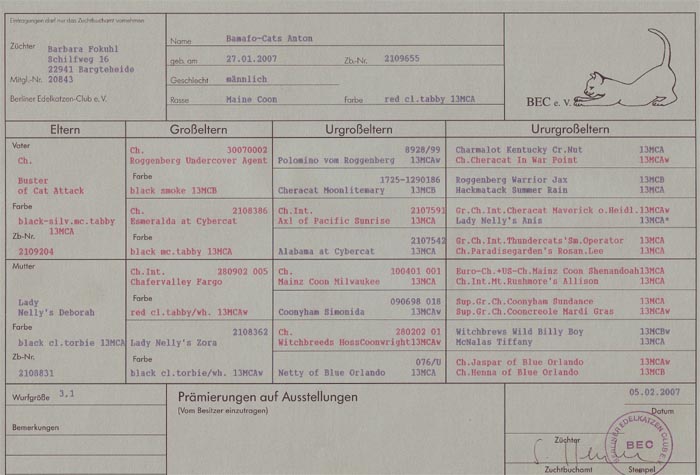 Eintragungen darf nur das Zuchtbuchamt vornehmen
Züchter
Barbara Fokuhl
Schilfweg 16
22941 Bargteheide
Mitgl.-Nr. 20843
Berliner Edelkatzen-Club e.V.
Name Bamafo-Cats Anton
geb. am 27.01.2007 Zb.-Nr. 2109655
Geschlecht männlich
Rasse Maine Coon Farbe red cl.tabby 13MCA
BEC e.V.
Eltern Großeltern Urgroßeltern Ururgroßeltern
Vater
Ch.
Buster
of Cat Attack
Farbe
black-silv.mc.tabby
13MCA
Zb-Nr.
2109204
Mutter
Lady
Nelly's Deborah
Farbe
black cl.torbie 13MCA
Zb.-Nr.
2108831
Ch. 30070002
Roggenberg Undercover Agent
Farbe
black smoke 13MCB
Ch. 2108386
Esmeralda at Cybercat
Farbe
black mc.tabby 13MCA
Ch.Int. 280902 005
Chafervalley Fargo
Farbe
red cl.tabby/wh. 13MCAw
2108362
Lady Nelly's Zora
Farbe
black cl.torbie/wh. 13MCAw
8928/99
Polomino vom Roggenberg 13MCAw
1725-1290186
Cheracat Moonlitemary 13MCB
Ch.Int. 2107591
Axl of Pacific Sunrise 13MCA
2107542
Alabama at Cybercat 13MCA
Ch. 100401 001
Mainz Coon Milwaukee 13MCA
090698 018
Coonyham Simonida 13MCAw
Ch. 280202 01
Witchbreeds HossCoonwright 13MCAw
076/U
Netty of Blue Orlando 13MCA
Charmalot Kentucky Cr.Nut 13MCA
Ch.Cheracat In War Point 13MCAw
Roggenberg Warrior Jax 13MCB
Hackmatack Summer Rain 13MCA
Gr.Ch.Int.Cheracat Maverick o.Heidl.13MCAw
Lady Nelly's Anis 13MCA*
Gr.Ch.Int.Thundercats'Sm.Operator 13MCA
Ch.Paradisegarden's Rosan.Lee 13MCA
Euro-Ch.+US-Ch.Mainz Coon Shenandoah13MCA
Ch.Int.Mt.Rushmore's Allison 13MCA
Sup.Gr.Ch.Coonyham Sundance 13MCA
Sup.Gr.Ch.Cooncreole Mardi Gras 13MCAw
Witchbrews Wild Billy Boy 13MCBw
McNalas Tiffany 13MCA
Ch.Jaspar of Blue Orlando 13MCAw
Ch.Henna of Blue Orlando 13MCB
Wurfgröße 3.1
Bemerkungen
Prämierungen auf Ausstellungen
(Vom Besitzer einzutragen)
05.02.2007
Datum
Züchter
Zuchtbuchamt Stempel
BERLINER EDELKATZEN CLUB E.V.
BEC